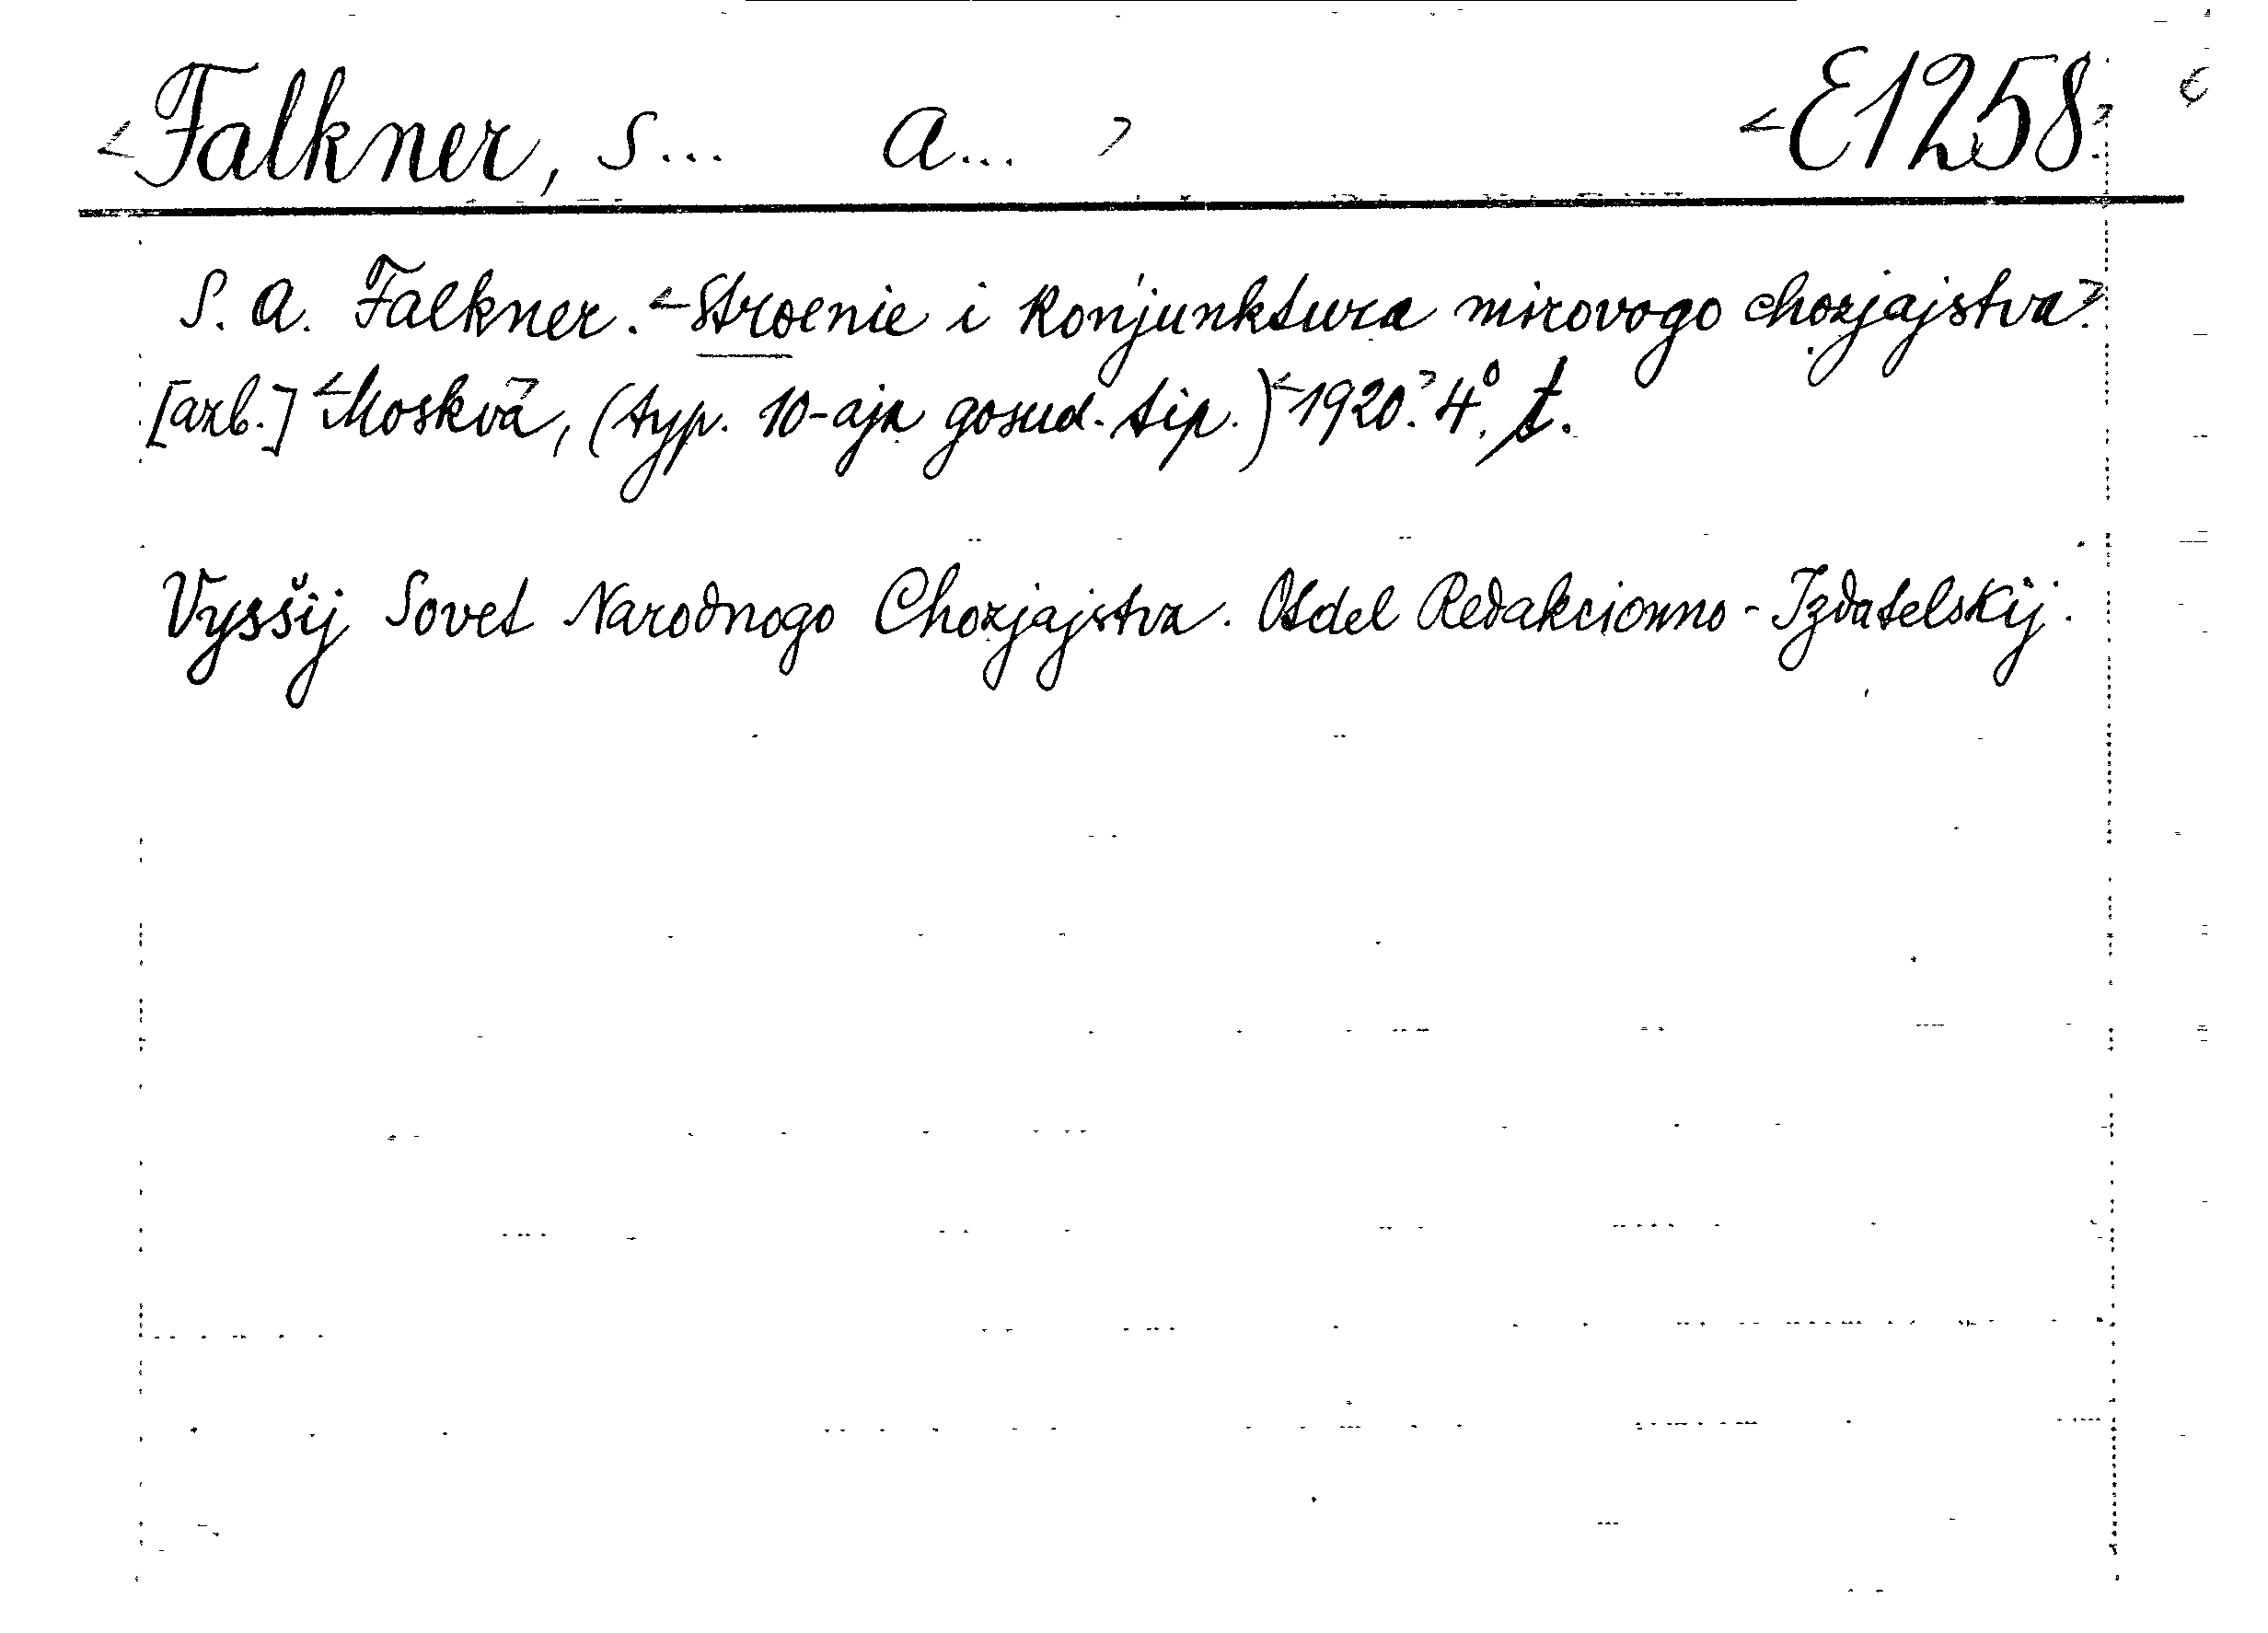 <Falkner, S... A...> <E1258>
S. A. Falkner. <Stroenie i konjunktura mirovogo chozjajstva>.
[azb.] <Moskva>, (typ. 10-aja gosud. tip.) <1920>. 4°. t.
Vysšij Sovet Narodnogo Chozjajstva. Otdel Redakcionno-Izdatelskij.